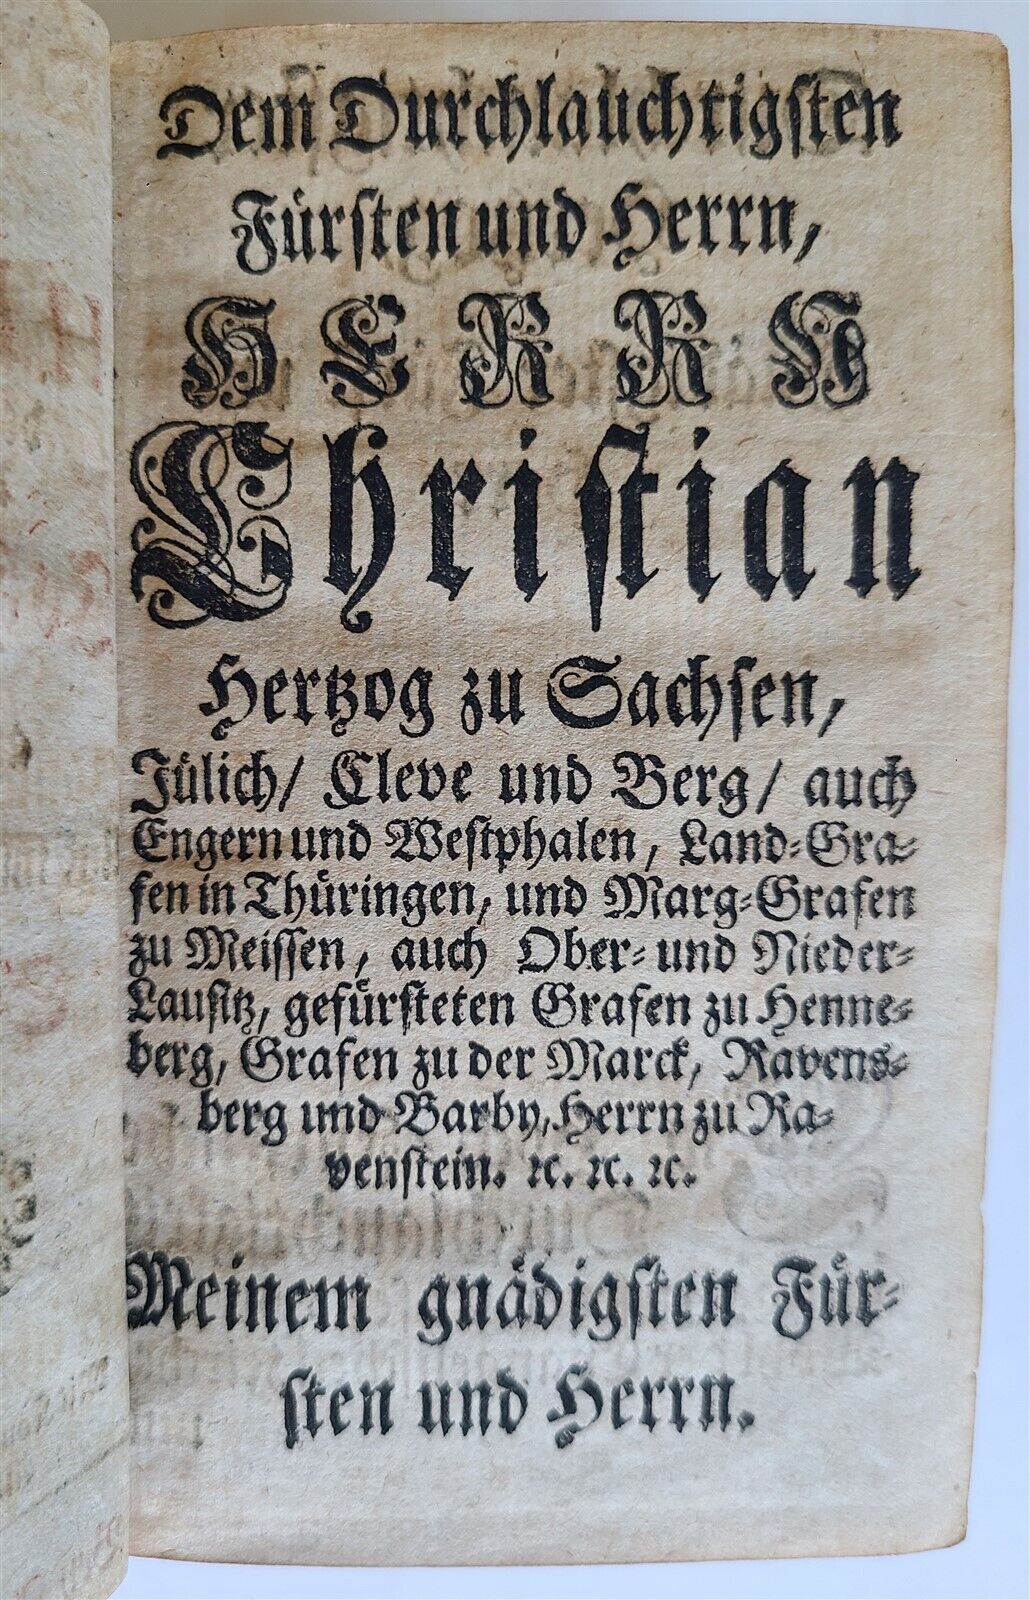 Dem Durchlauchtigsten
Fürsten und Herrn,
HERRN
Christian
Hertzog zu Sachsen,
Jülich/ Cleve und Berg/ auch
Engern und Westphalen, Land-Gra-
fen in Thüringen, und Marg-Grafen
zu Meissen, auch Ober- und Nieder-
Lausitz, gefürsteten Grafen zu Henne-
berg, Grafen zu der Marck, Ravens-
berg und Barby, Herrn zu Ra-
venstein. ꝛc. ꝛc. ꝛc.
Meinem gnädigsten Für-
sten und Herrn.